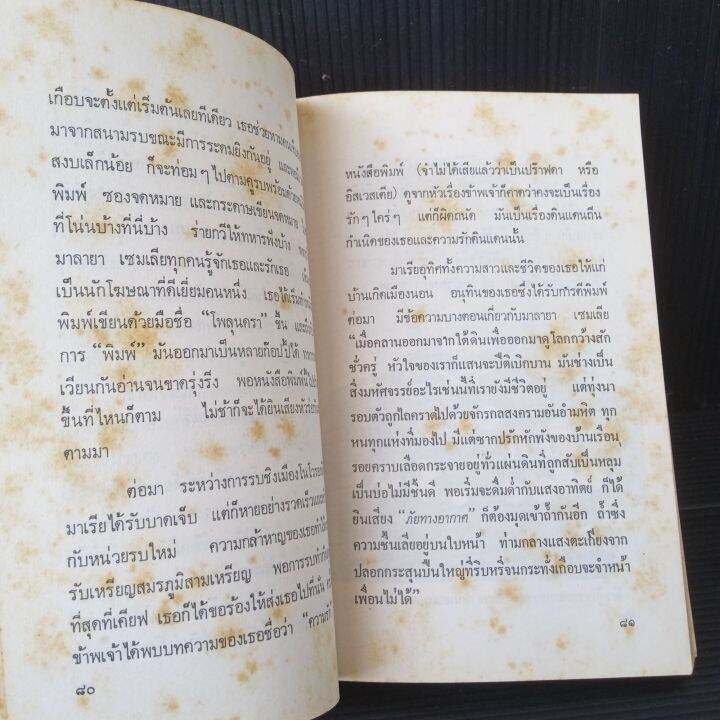 เกือบจะตั้งแต่เริ่มต้นเลยทีเดียว เธอช่วยหามคน
มาจากสนามรบขณะมีการระดมยิงกันอยู่ และพอ
สงบเล็กน้อย ก็จะท่อมๆ ไปตามคูรบพร้อมด้วย
พิมพ์ ซองจดหมาย และกระดาษเขียนจดหมาย
ที่โน่นบ้างที่นี่บ้าง ร่ายกวีให้ทหารฟังบ้าง
มาลายา เซมเลียทุกคนรู้จักเธอและรักเธอ
เป็นนักโฆษณาที่ดีเยี่ยมคนหนึ่ง เธอได้เริ่มทำ
พิมพ์เขียนด้วยมือชื่อ “โพลุนดรา” ขึ้น
การ “พิมพ์” มันออกมาเป็นหลายก๊อปปี้ได้
เวียนกันอ่านจนขาดรุ่งริ่ง พอหนังสือพิมพ์นี้ไป
ขึ้นที่ไหนก็ตาม ไม่ช้าก็จะได้ยินเสียงหัวเราะ
ตามมา
ต่อมา ระหว่างการรบชิงเมืองโนโวรอส
มาเรียได้รับบาดเจ็บ แต่ก็หายอย่างรวดเร็วและ
กับหน่วยรบใหม่ ความกล้าหาญของเธอทำให้
รับเหรียญสมรภูมิสามเหรียญ พอการรบทำท่า
ที่สุดที่เคียฟ เธอก็ได้ขอร้องให้ส่งเธอไปที่นั่น
ข้าพเจ้าได้พบบทความของเธอชื่อว่า “ความรัก
๘๐
หนังสือพิมพ์ (จำไม่ได้เสียแล้วว่าเป็นปร๊าฟดา หรือ
อิสเวสเตีย) ดูจากหัวเรื่องข้าพเจ้าก็คาดว่าคงจะเป็นเรื่อง
รักๆ ใคร่ๆ แต่ก็ผิดถนัด มันเป็นเรื่องดินแดนถิ่น
กำเนิดของเธอและความรักดินแดนนั้น
มาเรียอุทิศทั้งความสาวและชีวิตของเธอให้แก่
บ้านเกิดเมืองนอน อนุทินของเธอซึ่งได้รับการตีพิมพ์
ต่อมา มีข้อความบางตอนเกี่ยวกับมาลายา เซมเลีย
“เมื่อคลานออกมาจากใต้ดินเพื่อออกมาดูโลกกว้างสัก
ชั่วครู่ หัวใจของเราก็แสนจะปีติเบิกบาน มันช่างเป็น
สิ่งมหัศจรรย์อะไรเช่นนี้ที่เรายังมีชีวิตอยู่ แต่ทุ่งนา
รอบตัวถูกไถคราดไปด้วยจักรกลสงครามอันอำมหิต ทุก
หนทุกแห่งที่มองไป มีแต่ซากปรักหักพังของบ้านเรือน
รอยคราบเลือดกระจายอยู่ทั่วแผ่นดินที่ถูกสับเป็นหลุม
เป็นบ่อไม่มีชิ้นดี พอเริ่มจะดื่มด่ำกับแสงอาทิตย์ ก็ได้
ยินเสียง “ภัยทางอากาศ” ก็ต้องมุดเข้าถ้ำกันอีก ถ้ำซึ่ง
ความชื้นเลียอยู่บนใบหน้า ท่ามกลางแสงตะเกียงจาก
ปลอกกระสุนปืนใหญ่ที่ริบหรี่จนกระทั่งเกือบจะจำหน้า
เพื่อนไม่ได้”
๘๑